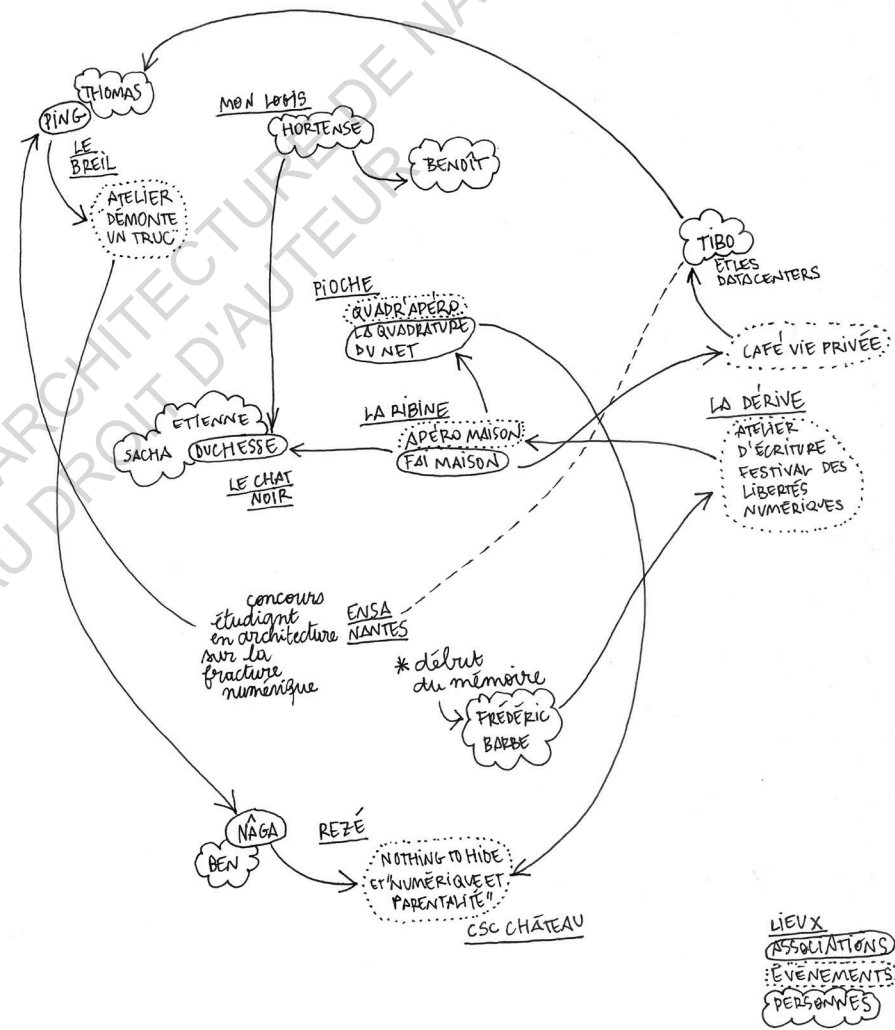 ARCHITECTURE DE NA
AU DROIT D'AUTEUR
THOMAS
PING
LE
BREIL
ATELIER
DÉMONTE
UN TRUC
MON LOGIS
HORTENSE
BENOÎT
TIBO
ET LES
DATACENTERS
PIOCHE
QUADR'APÉRO
LA QUADRATURE
DU NET
CAFÉ VIE PRIVÉE
LA DÉRIVE
ATELIER
D'ÉCRITURE
FESTIVAL DES
LIBERTÉS
NUMÉRIQUES
LA RIBINE
APÉRO MAISON
FAI MAISON
ETIENNE
SACHA
DUCHESSE
LE CHAT
NOIR
concours
étudiant
en architecture
sur la
fracture
numérique
ENSA
NANTES
* début
du mémoire
FRÉDÉRIC
BARBE
NÂGA
BEN
REZÉ
NOTHING TO HIDE
ET "NUMÉRIQUE ET
PARENTALITÉ"
CSC CHÂTEAU
LIEUX
ASSOCIATIONS
ÉVÉNEMENTS
PERSONNES